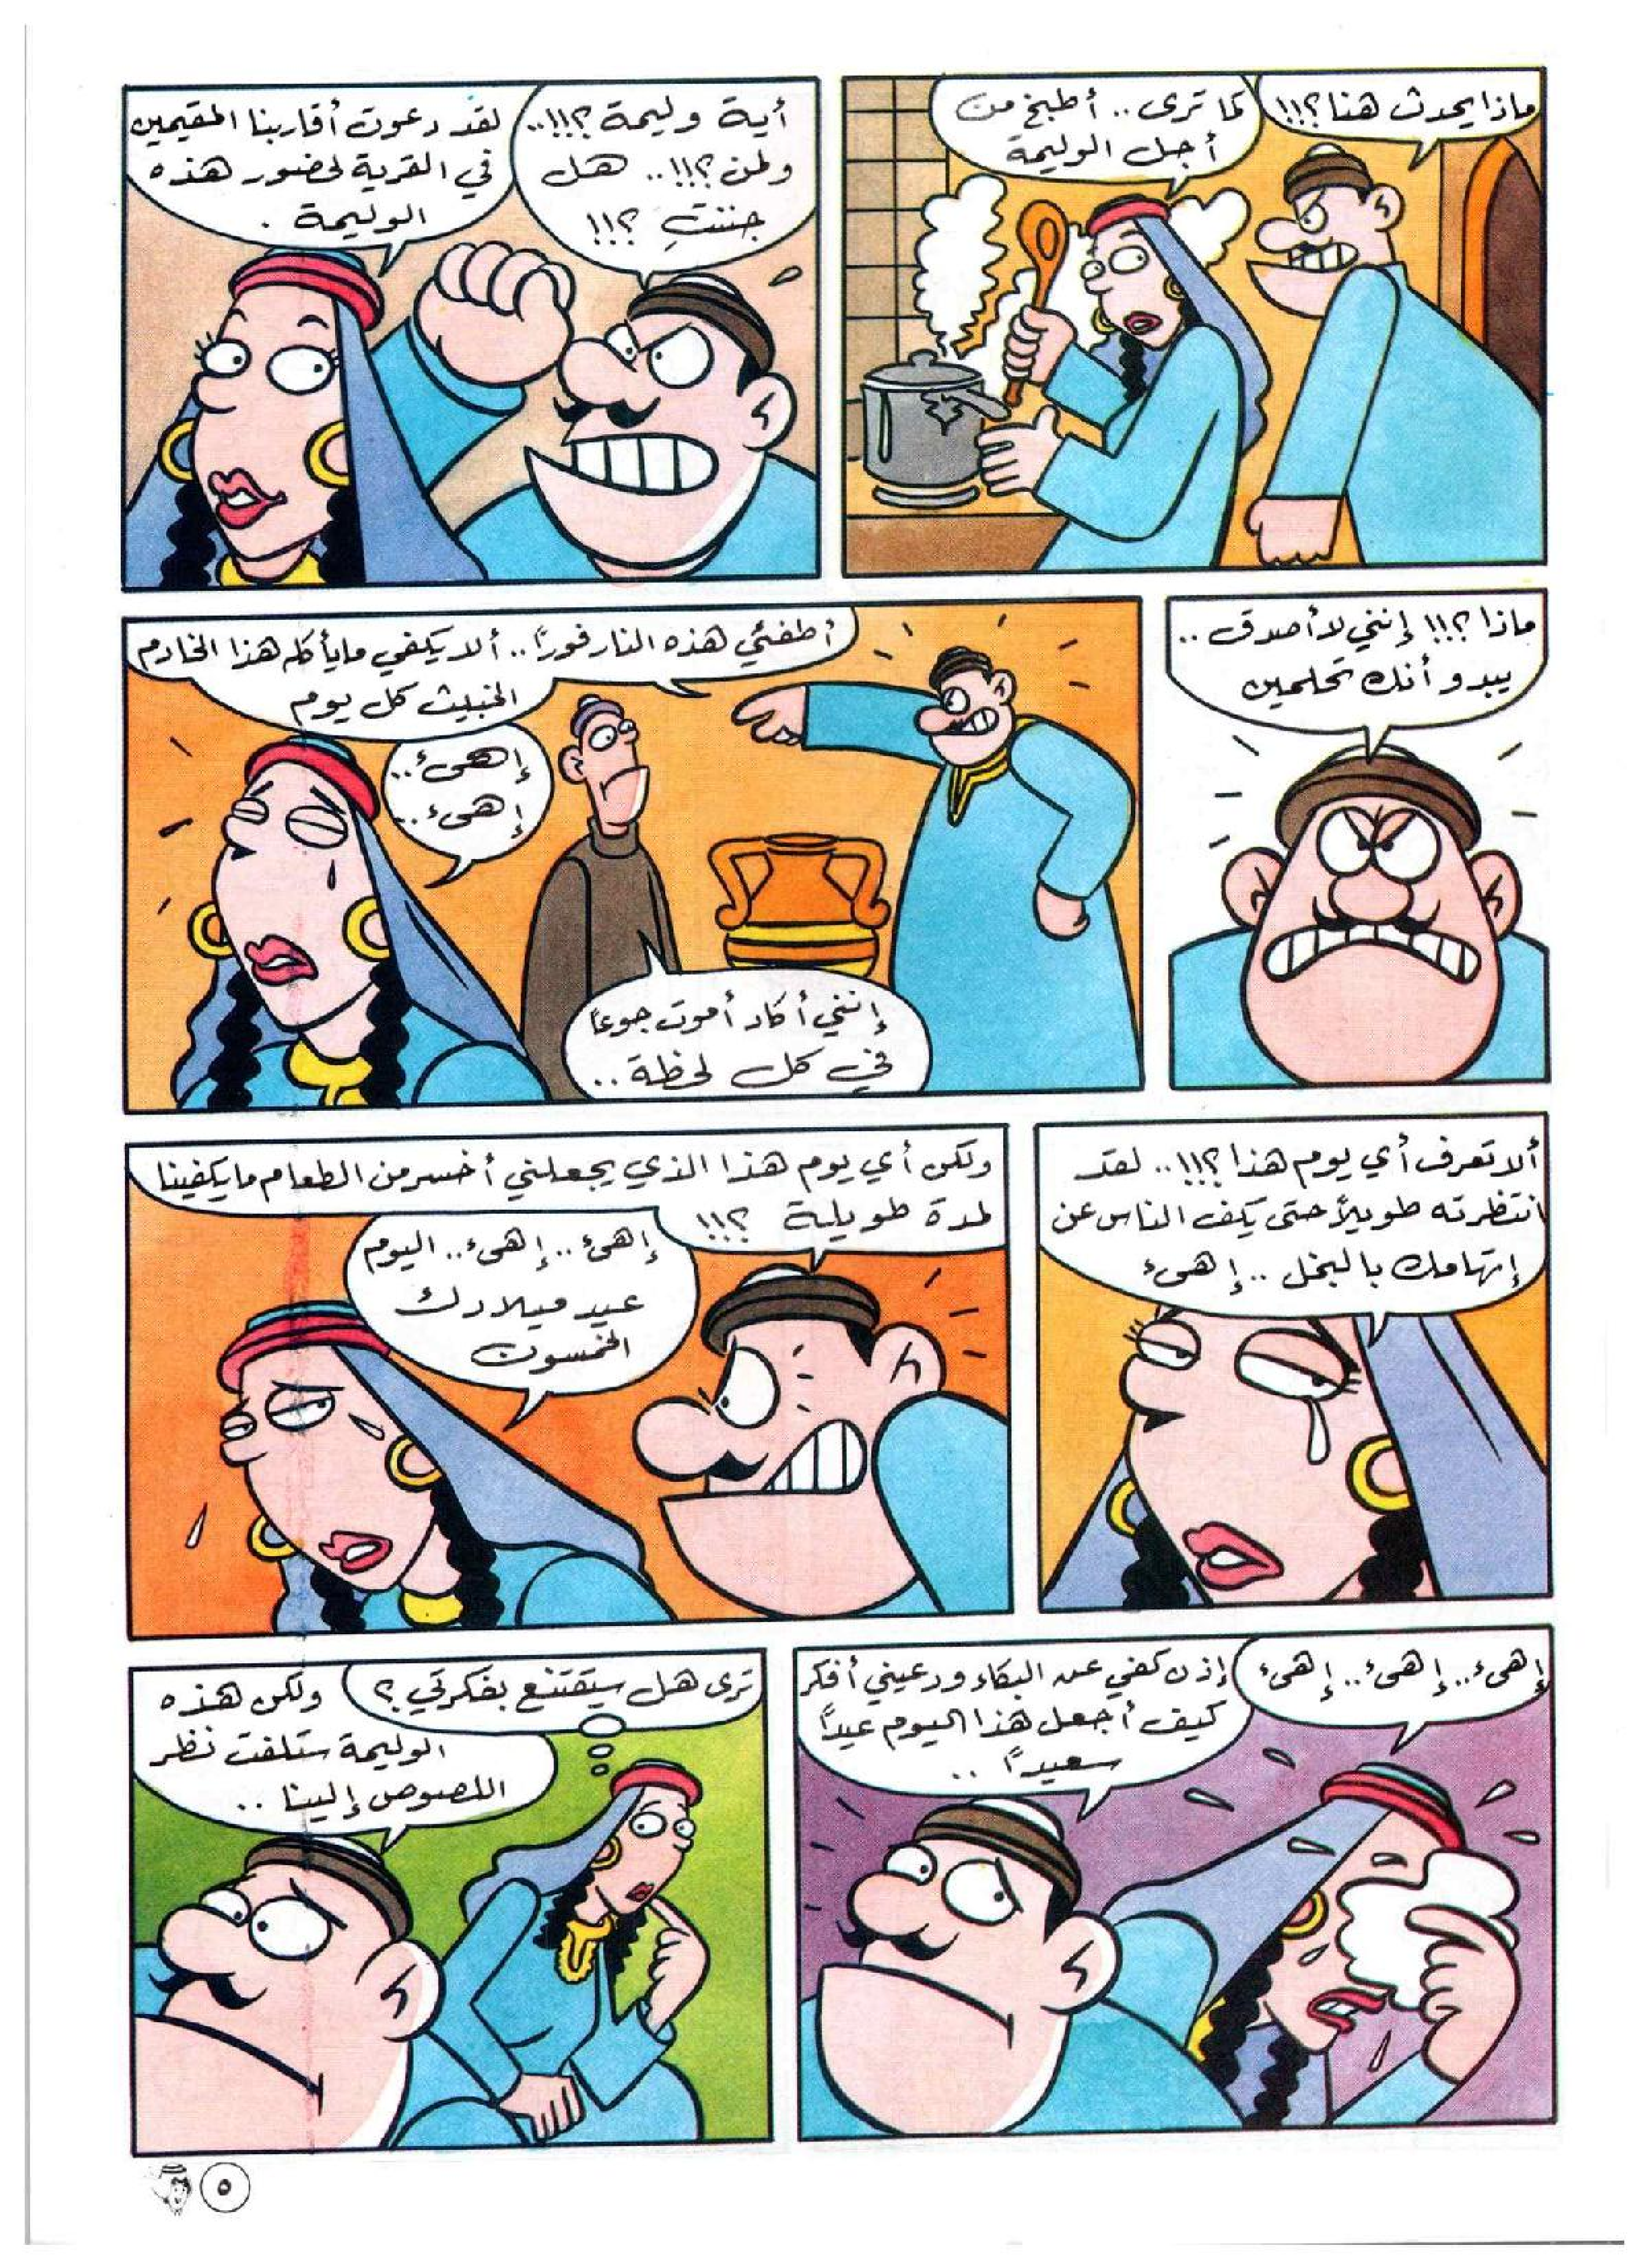 ماذا يحدث هنا؟!!!
كما ترى.. أطبخ من
أجل الوليمة
أية وليمة؟!!!..
ولمن؟!!!.. هل
جننتِ؟!!!
لقد دعوت أقاربنا المقيمين
في القرية لحضور هذه
الوليمة.
ماذا؟!!! إنني لا أصدق..
يبدو أنك تحلمين
أطفئي هذه النار فوراً.. ألا يكفي ما يأكله هذا الخادم
الخبيث كل يوم
إنني أكاد أموت جوعاً
في كل لحظة..
إهىء..
إهىء..
ألا تعرف أي يوم هذا؟!!!.. لقد
انتظرته طويلاً حتى يكف الناس عن
إتهامك بالبخل.. إهىء
ولكن أي يوم هذا الذي يجعلني أخسر من الطعام ما يكفينا
لمدة طويلة ؟!!!
إهىء.. إهىء.. اليوم
عيد ميلادك
الخمسون
إهىء.. إهىء.. إهىء
إذن كفي عن البكاء ودعيني أفكر
كيف أجعل هذا اليوم عيداً
سعيداً..
ترى هل سيقتنع بفكرتي؟
ولكن هذه
الوليمة ستلفت نظر
اللصوص إلينا..
٥